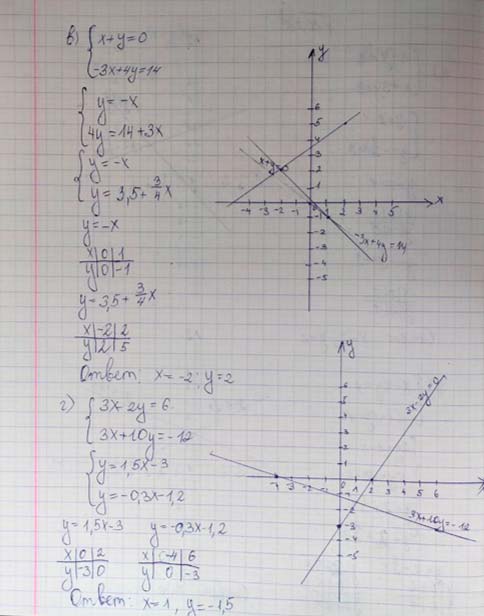 в) { x+y=0
-3x+4y=14
{ y=-x
4y=14+3x
{ y=-x
y=3,5+3/4x
y=-x
x|0|1
y|0|-1
y=3,5+3/4x
x|-2|2
y|2|5
Ответ: x=-2; y=2
y
6
5
4
3
2
1
-4 -3 -2 -1 0 1 2 3 4 5 x
-1
-2
-3
-4
-5
x+y=0
-3x+4y=14
г) { 3x-2y=6
3x+10y=-12
{ y=1,5x-3
y=-0,3x-1,2
y=1,5x-3 y=-0,3x-1,2
x|0|2 x|-4|6
y|-3|0 y|0|-3
Ответ: x=1, y=-1,5
y
6
5
4
3
2
1
-4 -3 -2 -1 0 1 2 3 4 5 6
-1
-2
-3
-4
-5
3x+10y=-12